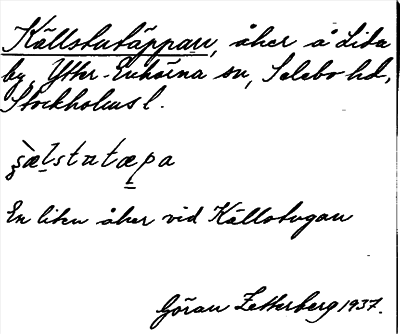 Källstutäppan, åker å Lida
by, Ytter-Enhörna sn, Selebo hd,
Stockholms l.
En liten åker vid Källstugan
Göran Zetterberg 1937.